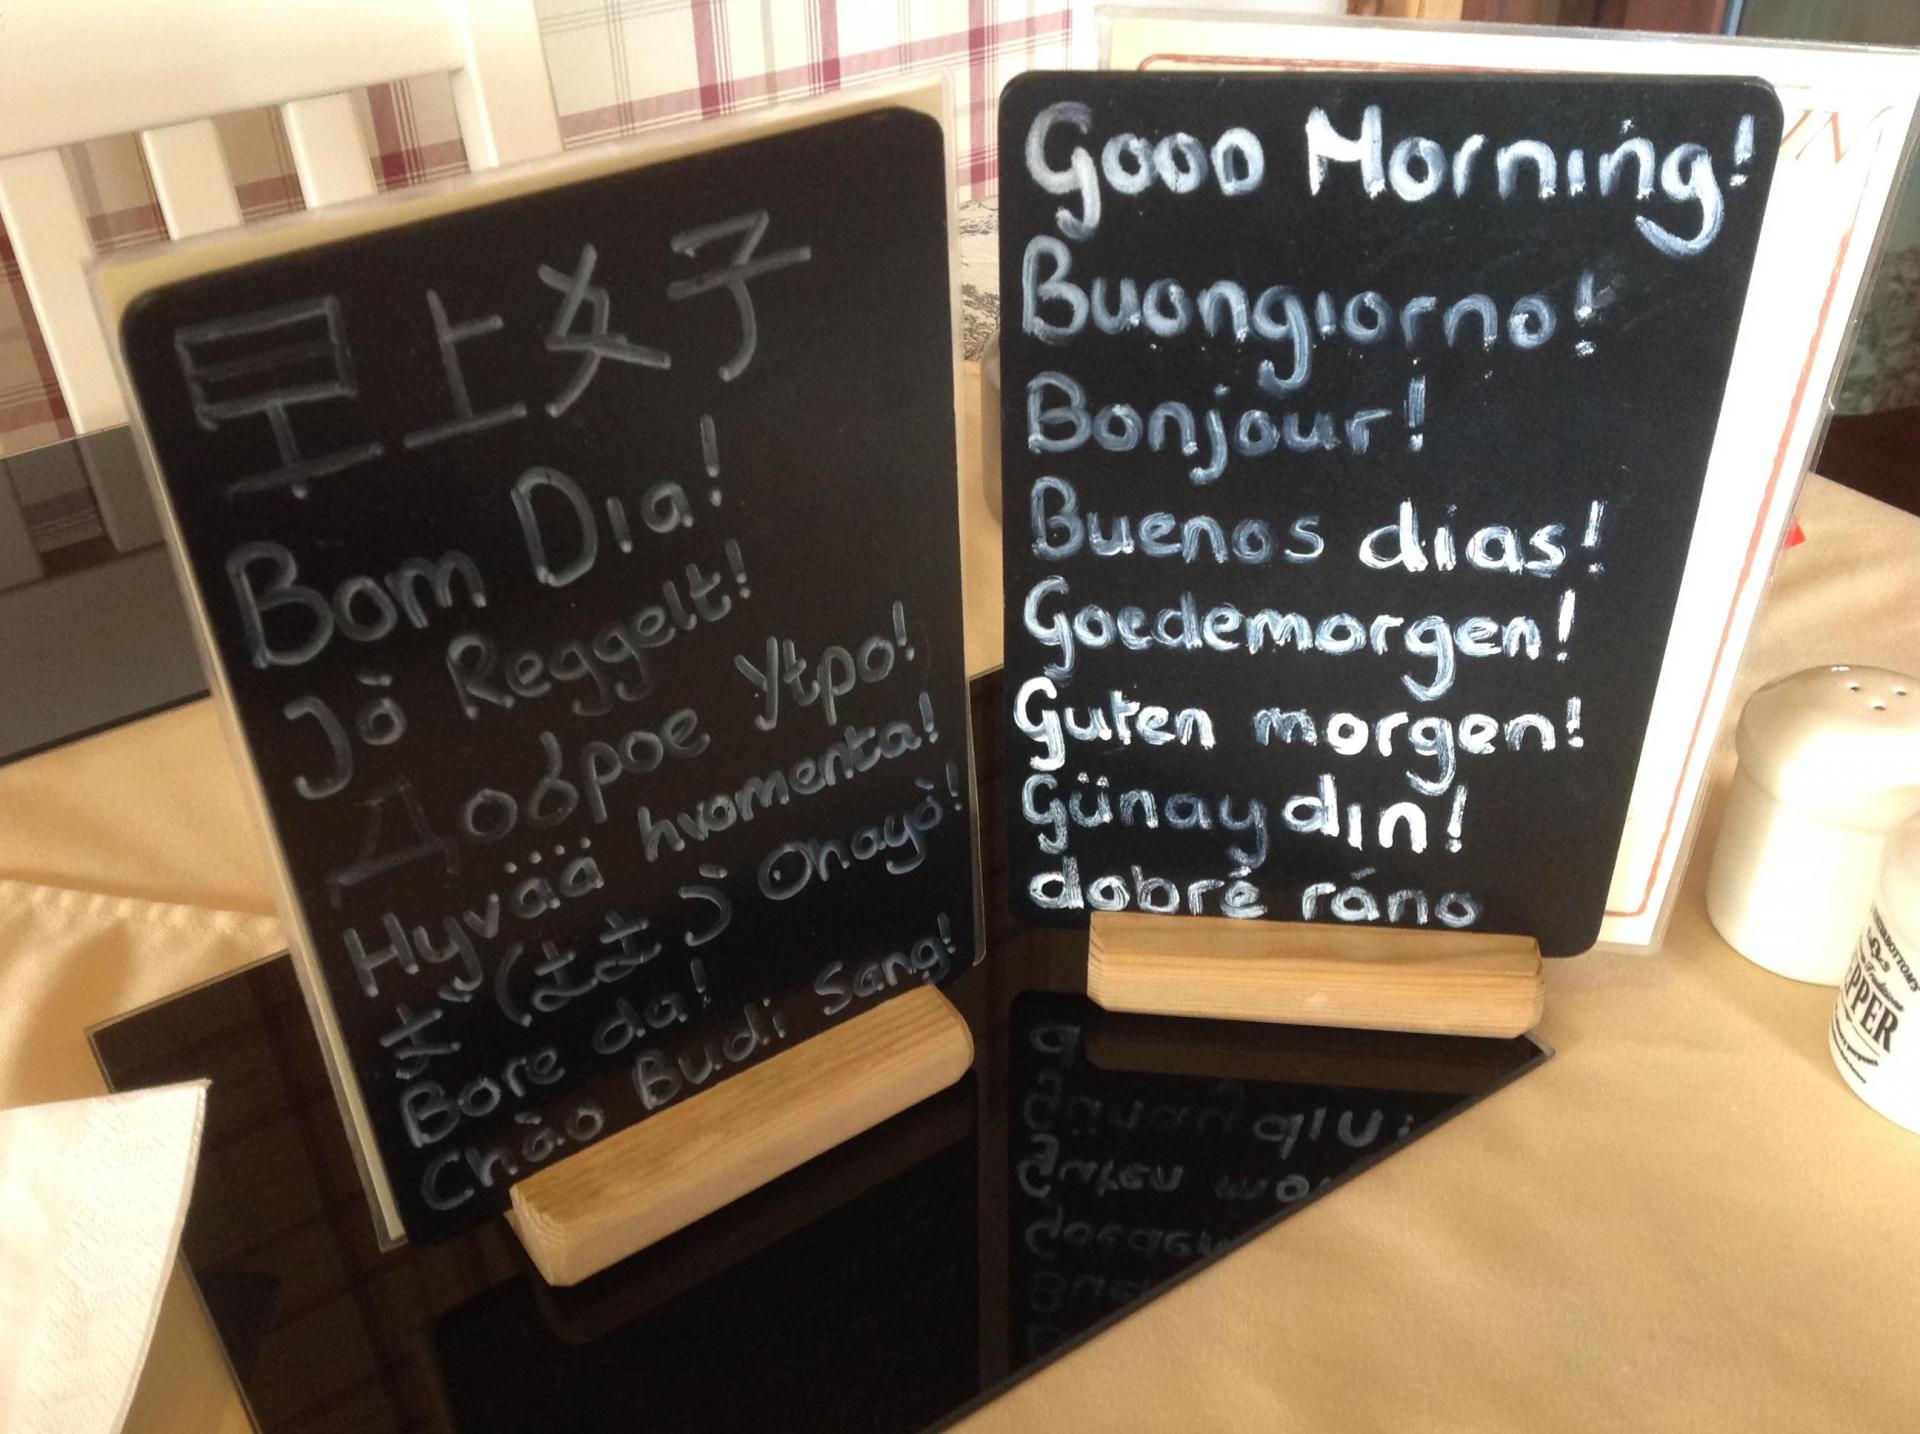 早上女子
Bom Dıa!
Jò Reggelt!
Доброе Утро!
Hyvää hvomenta!
Ohayò!
Bore da!
Chào Budi Sang!
Good Morning!
Buongıorno!
Bonjour!
Buenos dias!
Goedemorgen!
Guten morgen!
Günaydın!
dobré ráno
PEPPER